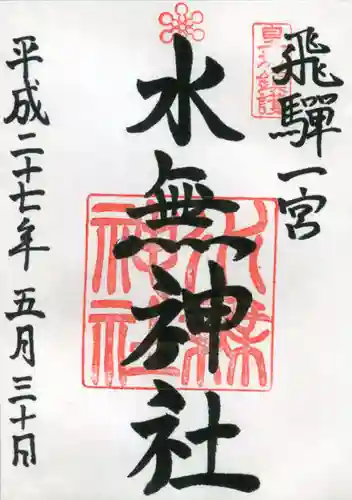 飛騨一宮
水無神社
平成二十七年五月三十日
水無神社